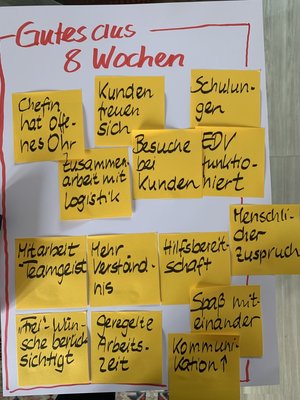 Gutes aus
8 Wochen
Chefin
hat Offe-
nes Ohr
Kunden
freuen
sich
Schulun-
gen
Zusammen-
arbeit mit
Logistik
Besuche
bei
Kunden
EDV
funktio-
niert
Menschli-
cher
Zuspruch
Mitarbeit
-Teamgeist
Mehr
Verständ-
nis
Hilfsbereit-
schaft
Spaß mit-
einander
"Frei"-Wün-
sche berück-
sichtigt
Geregelte
Arbeits-
zeit
Kommuni-
kation ↑